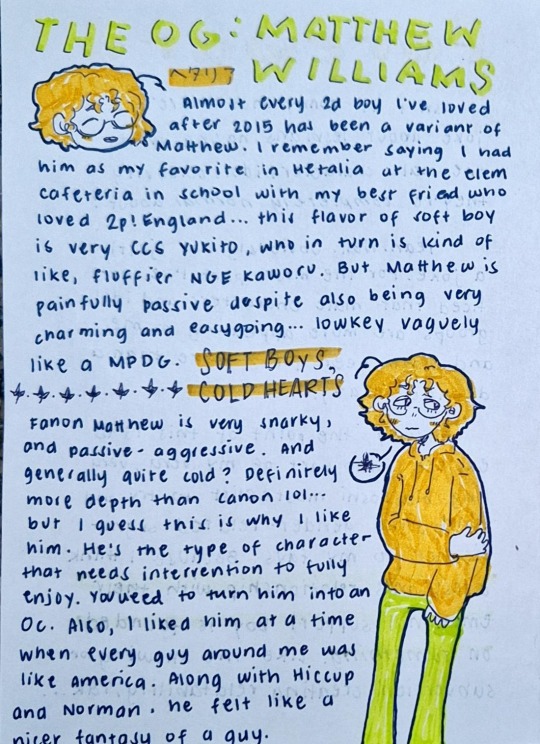 THE OG: MATTHEW
WILLIAMS
Almost every 2d boy I've loved
after 2015 has been a variant of
Matthew. I remember saying I had
him as my favorite in Hetalia at the elem
cafeteria in school with my best fried who
loved 2p! England... this flavor of soft boy
is very CCS Yukito, who in turn is kind of
like, fluffier NGE Kaworu. But Matthew is
painfully passive despite also being very
charming and easygoing... lowkey vaguely
like a MPDG.
SOFT BOYS,
COLD HEARTS
Fanon Matthew is very snarky,
and passive-aggressive. And
generally quite cold? Definitely
more depth than canon lol...
but I guess this is why I like
him. He's the type of character
that needs intervention to fully
enjoy. You need to turn him into an
OC. Also, I liked him at a time
when every guy around me was
like America. Along with Hiccup
and Norman. he felt like a
nicer fantasy of a guy.